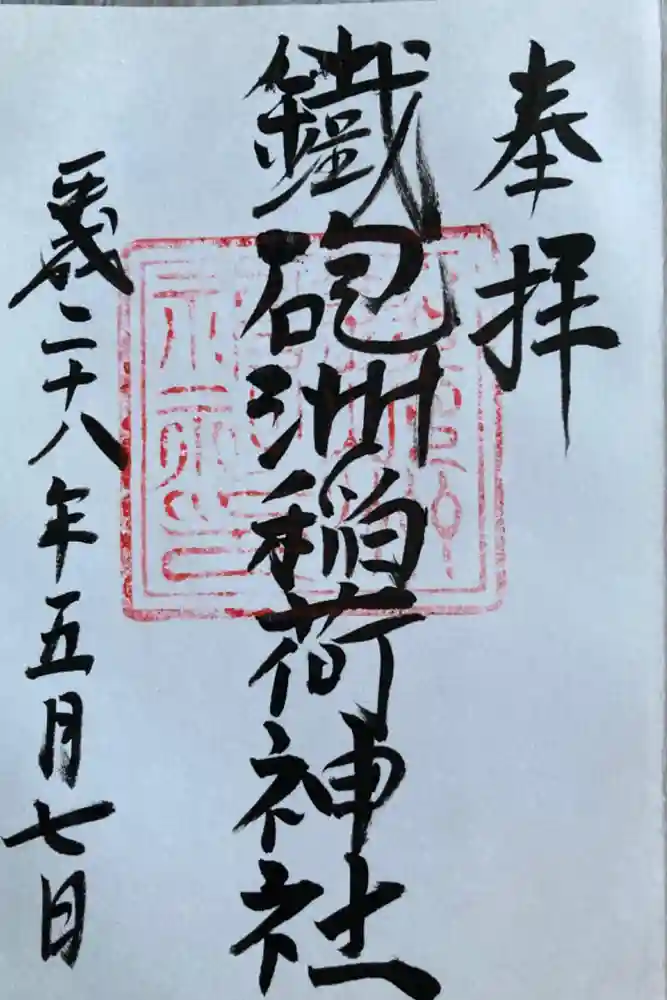 奉拝
鐵砲洲稲荷神社
平成二十八年五月七日